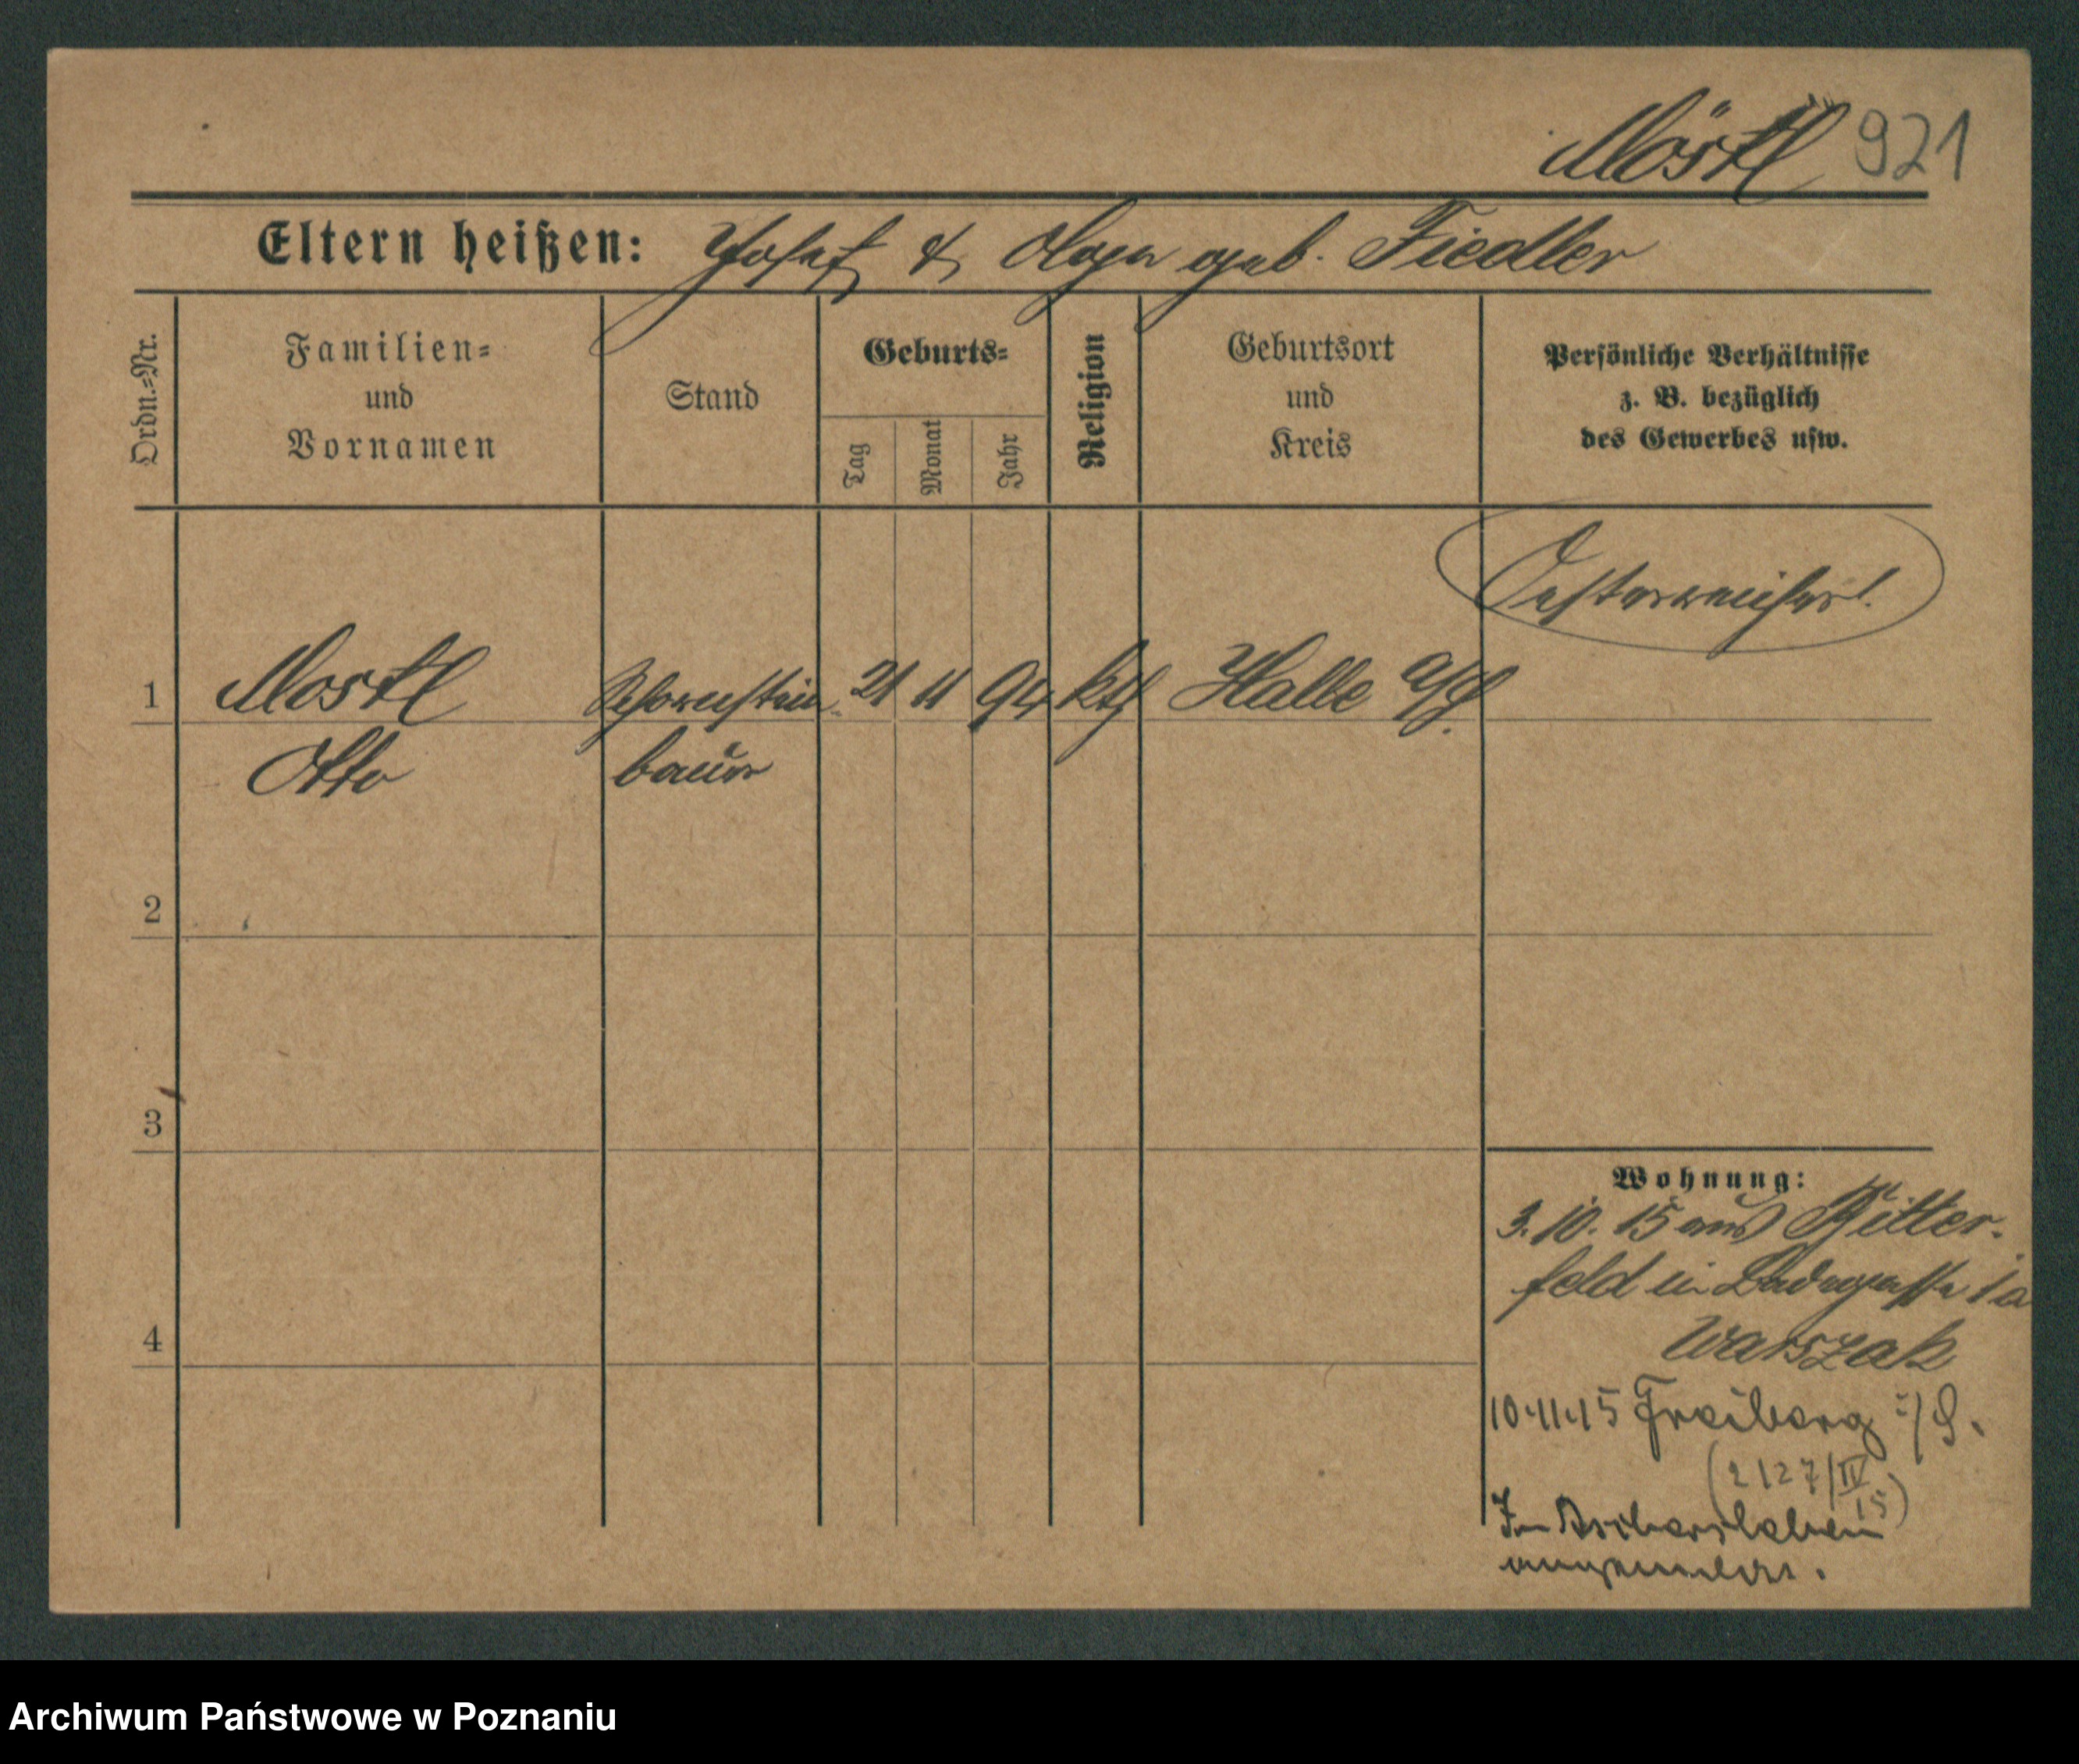 Möstl 921
Eltern heißen: Josef & Olga geb. Fiedler
Ordn.=Nr.
Familien=
und
Vornamen
Stand
Geburts=
Tag
Monat
Jahr
Religion
Geburtsort
und
Kreis
Persönliche Verhältnisse
z. B. bezüglich
des Gewerbes usw.
Oesterreicher!
1 Mostl Schornstein- 21 11 94 kth Halle a/S.
Otto bauer
2
3
4
Wohnung:
3. 10. 15 aus Bitter-
feld in Badegasse 1a
Warszak
10.11.15 Freiberg i/S.
(2127/IV
15)
In Aschersleben
angemeldet.